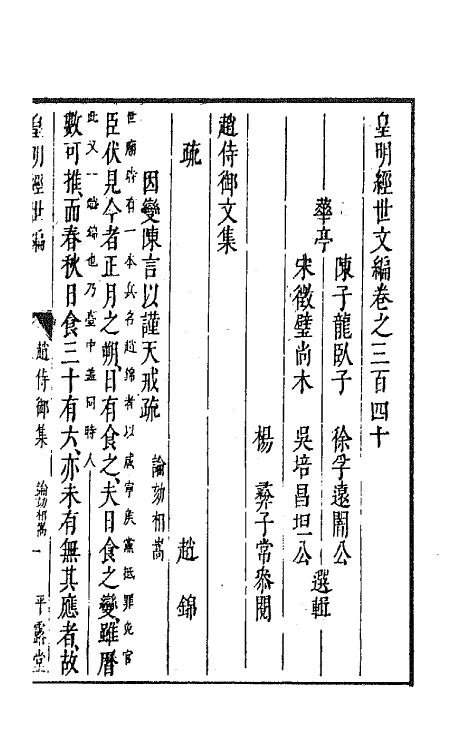 皇明經世文編卷之三百四十
華亭
陳子龍臥子 徐孚遠闇公
宋徵璧尚木 吳培昌坦公
選輯
楊 彝子常叅閱
趙侍御文集
疏 趙 錦
因變陳言以謹天戒疏 論劾相嵩
世廟時有一本兵名趙錦者以咸寧矦黨抵罪免官
臣伏見今者正月之朔日有食之夫日食之變雖曆
此又一趙錦也乃臺中葢同時人
數可推而春秋日食三十有六亦未有無其應者故
皇明經世編 趙侍御集 論劾相嵩 一 平露堂